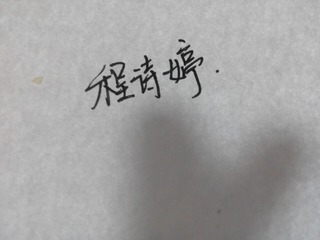 程诗婷.